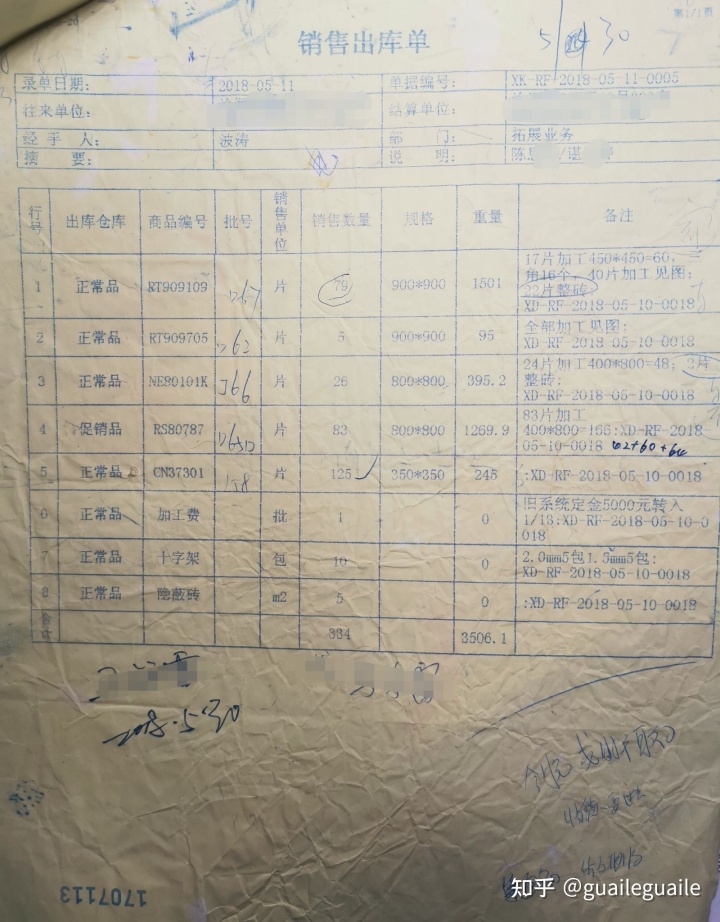 第1/1页
销售出库单
5 30
录单日期: 2018-05-11 单据编号: XK-RF-2018-05-11-0005
往来单位: 结算单位:
经手人: 波涛 部门: 拓展业务
摘要: 说明: 陈
行号 出库仓库 商品编号 批号 销售单位 销售数量 规格 重量 备注
1 正常品 RT909109 片 79 900*900 1501 17片加工450*450=60,三
角16个, 40片加工见图;
22片整砖;
XD-RF-2018-05-10-0018
2 正常品 RT909705 片 5 900*900 95 全部加工见图:
XD-RF-2018-05-10-0018
3 正常品 NE80101K J66 片 26 800*800 395.2 24片加工400*800=48; 2片
整砖:
XD-RF-2018-05-10-0018
4 促销品 RS80787 片 83 800*800 1269.9 83片加工
400*800=166:XD-RF-2018-
05-10-0018 42+60+64
5 正常品 CN37301 片 125 350*350 245 :XD-RF-2018-05-10-0018
6 正常品 加工费 批 1 0 旧系统定金5000元转入
1/13:XD-RF-2018-05-10-0
018
7 正常品 十字架 包 10 0 2.0mm5包1.5mm5包:
XD-RF-2018-05-10-0018
8 正常品 隐蔽砖 m2 5 0 :XD-RF-2018-05-10-0018
合计 334 3506.1
2018.5.30
1707113
知乎 @guaileguaile